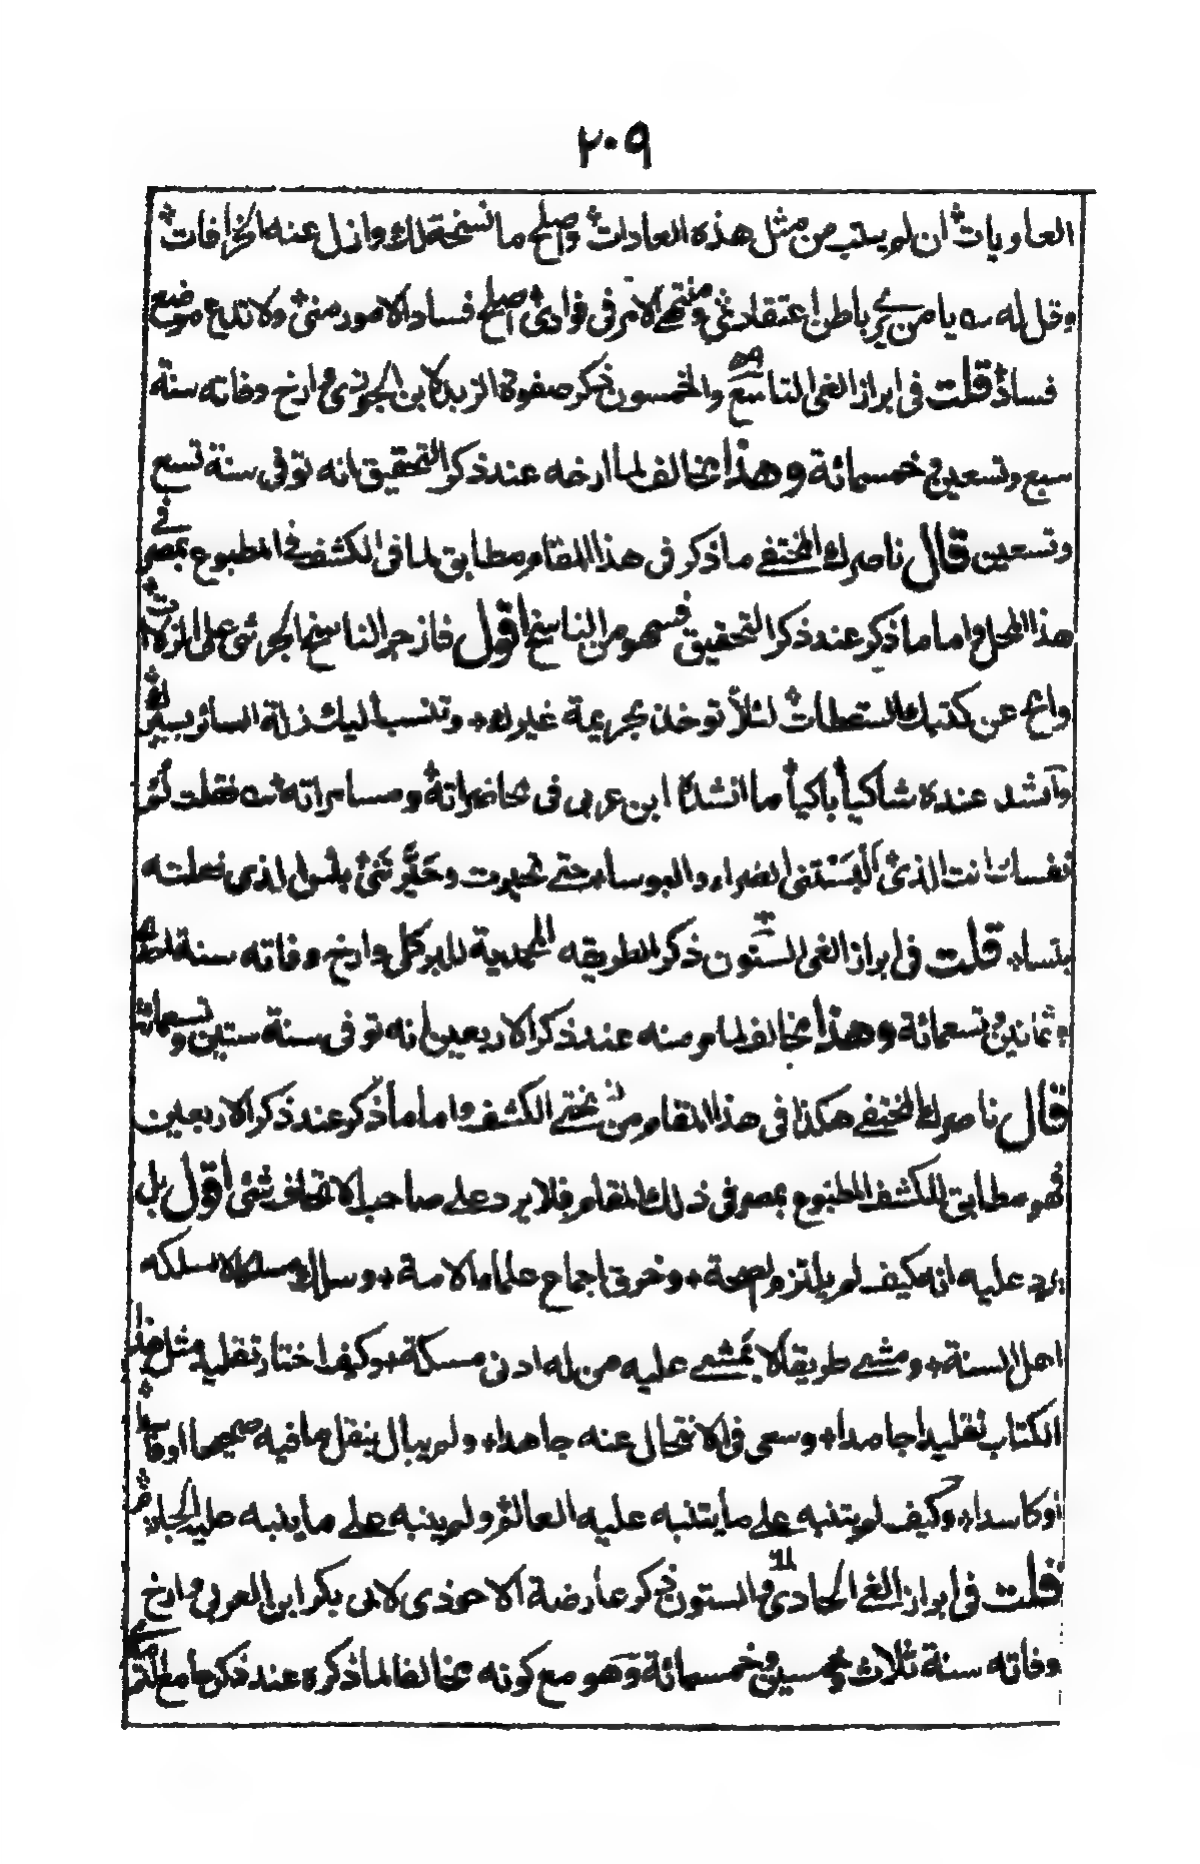 ٢٠٩
العاويات ان لم يتب من مثل هذه العادات واصلح ما نسخه لك وازل عنه الخرافات
وقل له يا من باطن اعتقادي ومنتهى الامر في فوادي اصلح فساد الامور مني ولا تدع موضع
فساد قلت في ابراز الغي التاسع والخمسون ذكر صفوة الزبد لابن الجوزي وارخ وفاته سنة
سبع وتسعين وخمسمائة وهذا مخالف لما ارخه عند ذكر التحقيق بانه توفى سنة تسع
وتسعين قال ناصرك المختفى ما ذكر فى هذا المقام مطابق لما فى الكشف المطبوع بمصر فى
هذا المحل واما ما ذكر عند ذكر التحقيق فسهو من الناسخ اقول فازجر الناسخ الجرئ على الزلات
وامح عن كتبك السقطات لئلا توخذ بجريمة غيرك وتنسب اليك زلة السائر بسيرك
وانشد عنده شاكيا باكيا ما انشده ابن عربى فى محاضراته ومسامراته فقلت لم
نفسك انت الذى البستنى الضراء والبوسا حتى تحيرت وحير شئ بئس الذى فعلته
بتسا قلت فى ابراز الغى الستون ذكر الطريقه المحمدية للبركلى وارخ وفاته سنة احدى
وثمانين وتسعمائة وهذا مخالف لما مر منه عند ذكر الاربعين انه توفى سنة ستين وتسعمائة
قال ناصرك المختفى هكذا فى هذا المقام من نسختى الكشف واما ما ذكر عند ذكر الاربعين
فهو مطابق للكشف المطبوع بمصر فى ذلك المقام فلا يرد على صاحب الاتحاف شئ اقول بل
يرد عليه انه كيف لم يلتزم الصحة وخرق اجماع علماء الامة وسلك مسلكا لا يسلكه
اهل السنة ومشى طريقا لا يمشى عليه من له ادنى مسكة وكيف اختار تقليد مثل هذا
الكتاب تقليدا جامدا وسعى فى الانتحال عنه جاهدا ولم يبال بنقل ما فيه صحيحا او فاسدا
او كاسدا وكيف لم يتنبه على ما يتنبه عليه العالم ولم ينبه على ما ينبه عليه
قلت فى ابراز الغى الحادى والستون ذكر عارضة الاحوذى لابى بكر ابن العربى وارخ
وفاته سنة ثلاث وخمسين وخمسمائة وهو مع كونه مخالفا لما ذكره عند ذكر جامع الترمذى